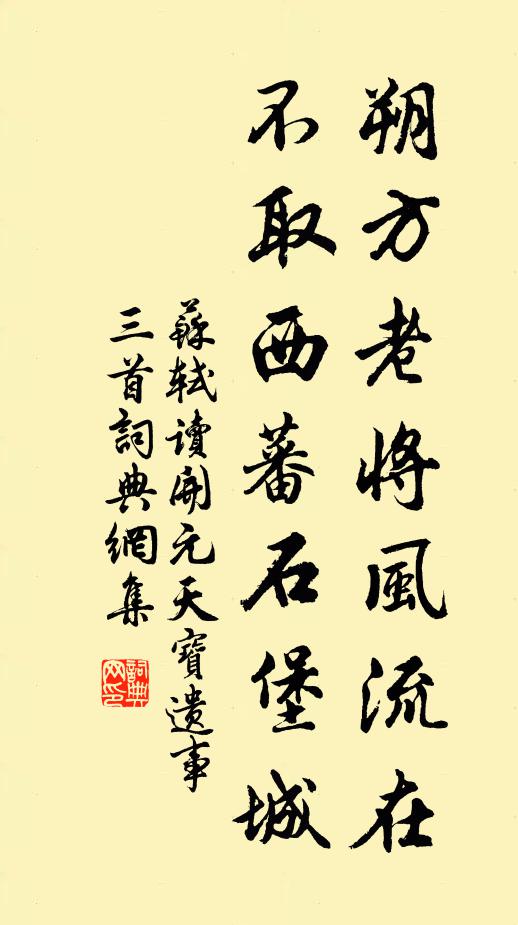 朔方老將風流在
不取西蕃石堡城
蘇軾讀開元天寶遺事
三首詞典網集
詞典
网印